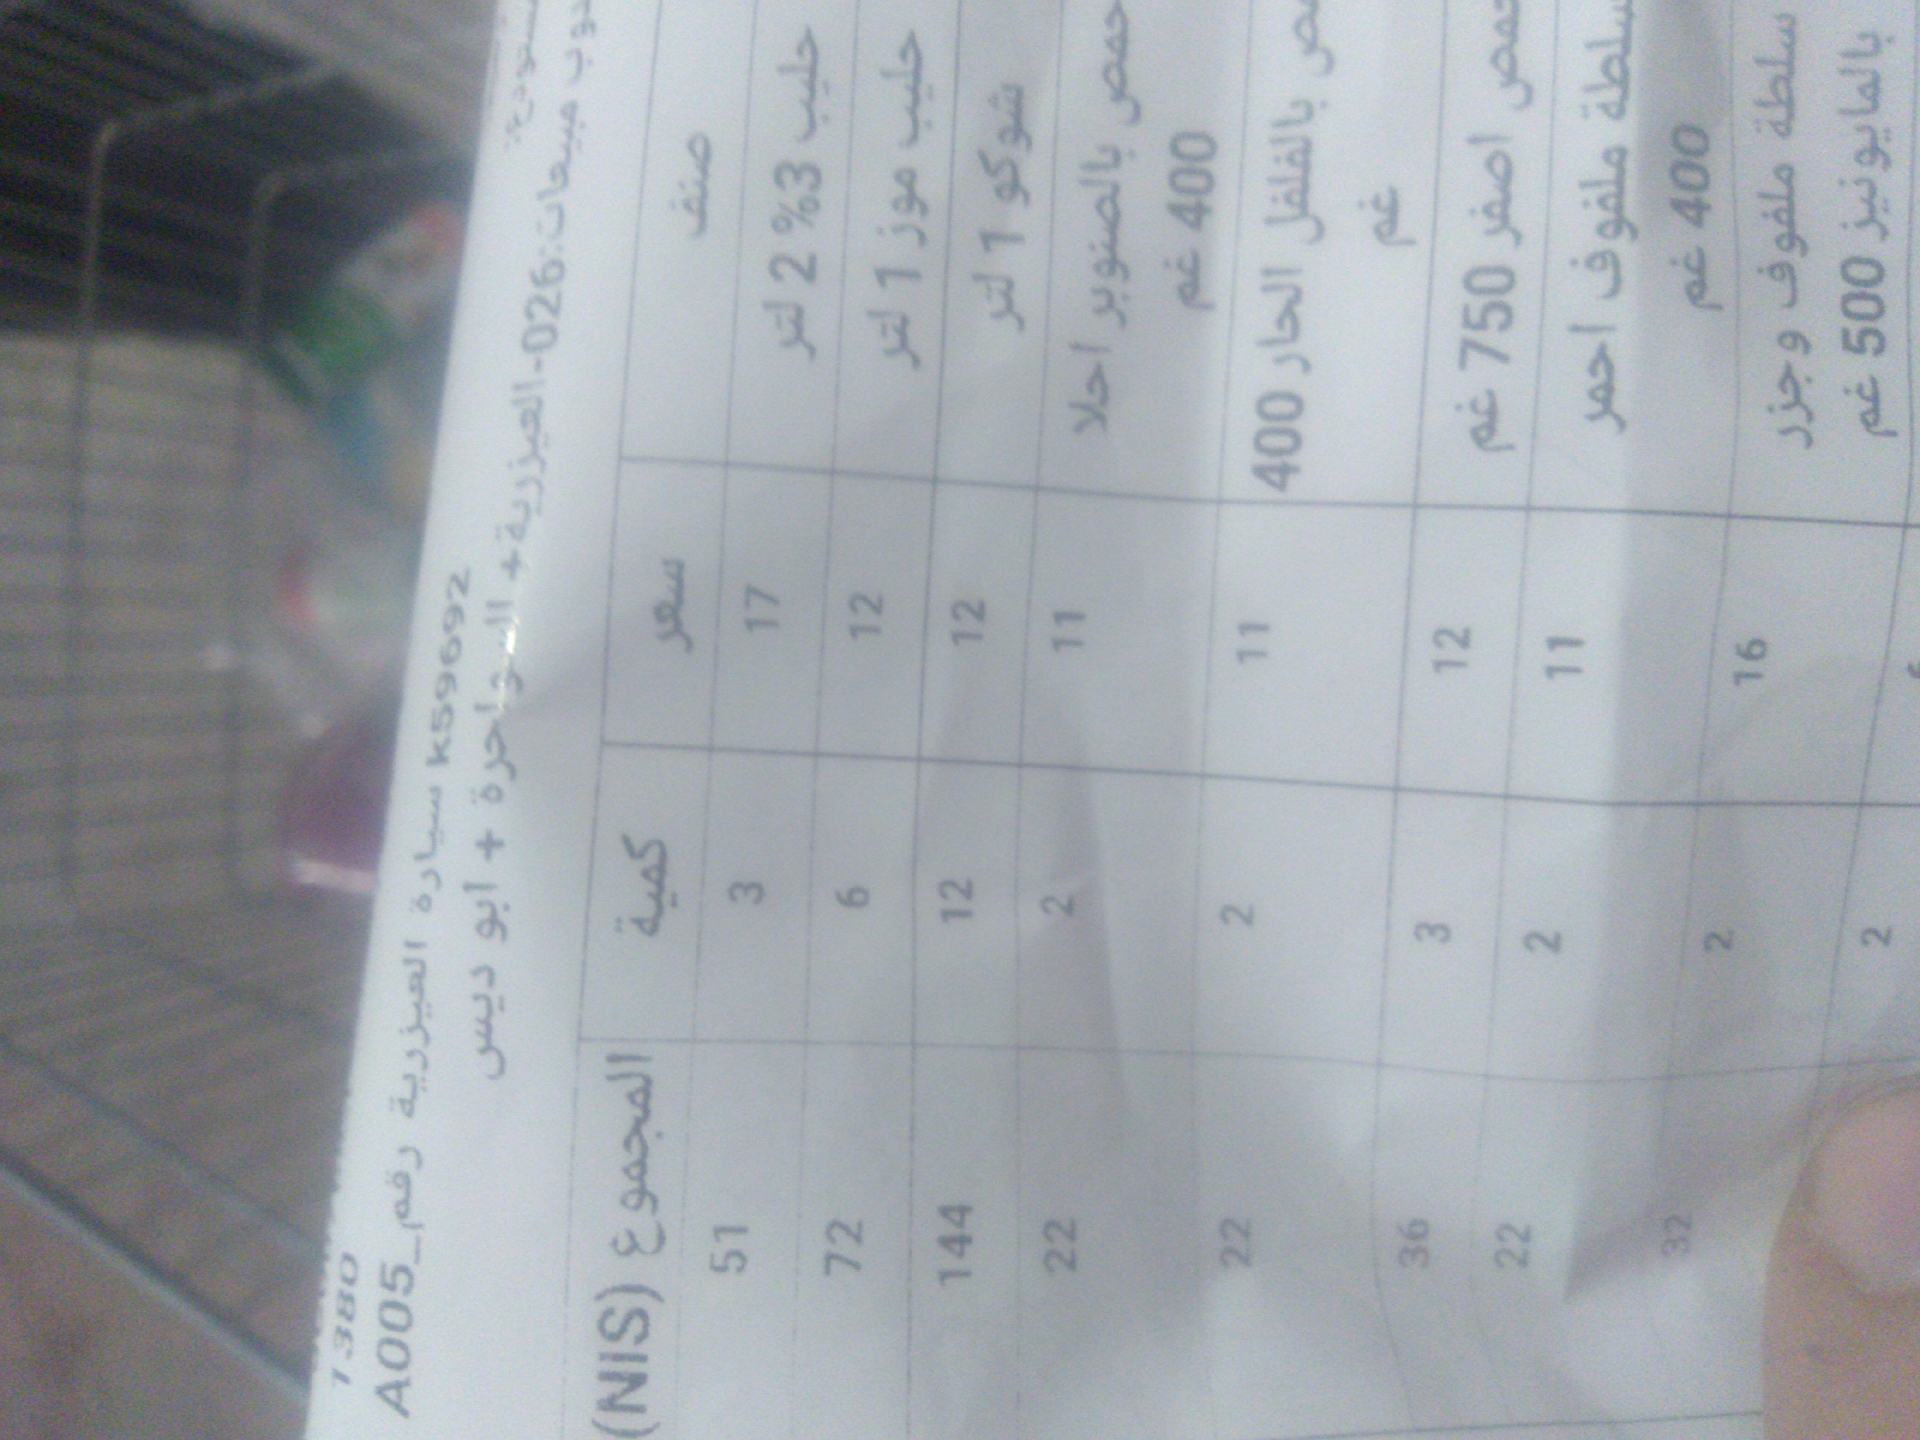 1380
سيارة العيزرية رقم_A005 K59692
مبيعات:026-العيزرية+ السواحرة + ابو ديس
صنف سعر كمية المجموع (NIS)
حليب 3% 2 لتر 17 3 51
حليب موز 1 لتر 12 6 72
شوكو 1 لتر 12 12 144
حمص بالصنوبر احلا 11 2 22
400 غم
بالفلفل الحار 400 11 2 22
غم
حمص اصفر 750 غم 12 3 36
سلطة ملفوف احمر 11 2 22
400 غم
سلطة ملفوف وجزر 16 2 32
بالمايونيز 500 غم
2